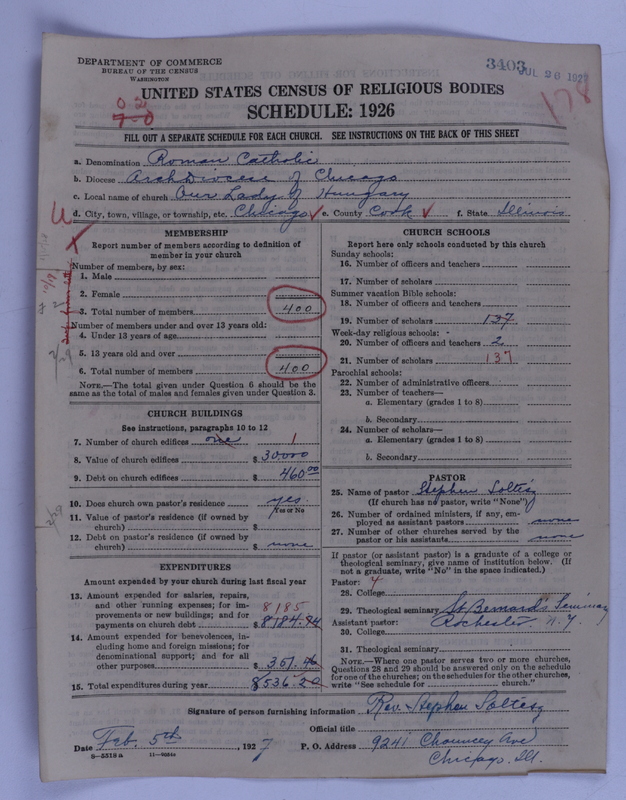 DEPARTMENT OF COMMERCE
BUREAU OF THE CENSUS
WASHINGTON
3403 JUL 26 1927
178
UNITED STATES CENSUS OF RELIGIOUS BODIES
SCHEDULE: 1926
0 2
7-0
FILL OUT A SEPARATE SCHEDULE FOR EACH CHURCH. SEE INSTRUCTIONS ON THE BACK OF THIS SHEET
a. Denomination Roman Catholic
b. Diocese ArchDiocese of Chicago
c. Local name of church Our Lady of Hungary
d. City, town, village, or township, etc. Chicago e. County Cook f. State Illinois
MEMBERSHIP
Report number of members according to definition of
member in your church
Number of members, by sex:
1. Male
2. Female
3. Total number of members 400
Number of members under and over 13 years old:
4. Under 13 years of age
5. 13 years old and over
6. Total number of members 400
NOTE.—The total given under Question 6 should be the
same as the total of males and females given under Question 3.
CHURCH BUILDINGS
See instructions, paragraphs 10 to 12
7. Number of church edifices one 1
8. Value of church edifices $ 30000
9. Debt on church edifices $ 460.00
10. Does church own pastor's residence yes.
Yes or No
11. Value of pastor's residence (if owned by
church) $
12. Debt on pastor's residence (if owned by
church) $ none
EXPENDITURES
Amount expended by your church during last fiscal year
13. Amount expended for salaries, repairs,
and other running expenses; for im-
provements or new buildings; and for 8185
payments on church debt $ 8184.84
14. Amount expended for benevolences, in-
cluding home and foreign missions; for
denominational support; and for all
other purposes $ 351.46
15. Total expenditures during year 8536.20
CHURCH SCHOOLS
Report here only schools conducted by this church
Sunday schools:
16. Number of officers and teachers
17. Number of scholars
Summer vacation Bible schools:
18. Number of officers and teachers
19. Number of scholars 137
Week-day religious schools:
20. Number of officers and teachers 2
21. Number of scholars 137
Parochial schools:
22. Number of administrative officers
23. Number of teachers—
a. Elementary (grades 1 to 8)
b. Secondary
24. Number of scholars—
a. Elementary (grades 1 to 8)
b. Secondary
PASTOR
25. Name of pastor Stephen Soltesz
(If church has no pastor, write "None")
26. Number of ordained ministers, if any, em-
ployed as assistant pastors none
27. Number of other churches served by the
pastor or his assistants none
If pastor (or assistant pastor) is a graduate of a college or
theological seminary, give name of institution below. (If
not a graduate, write "No" in the space indicated.)
Pastor:
28. College
29. Theological seminary St Bernard's Seminary
Assistant pastor: Rochester N.Y.
30. College
31. Theological seminary
NOTE.—Where one pastor serves two or more churches,
Questions 28 and 29 should be answered only on the schedule
for one of the churches; on the schedules for the other churches,
write "See schedule for church."
Signature of person furnishing information Rev. Stephen Soltesz
Official title
Date Feb. 5th, 1927 P. O. Address 9241 Chauncey Ave
8-5518a 11-9024a
Chicago. Ill.